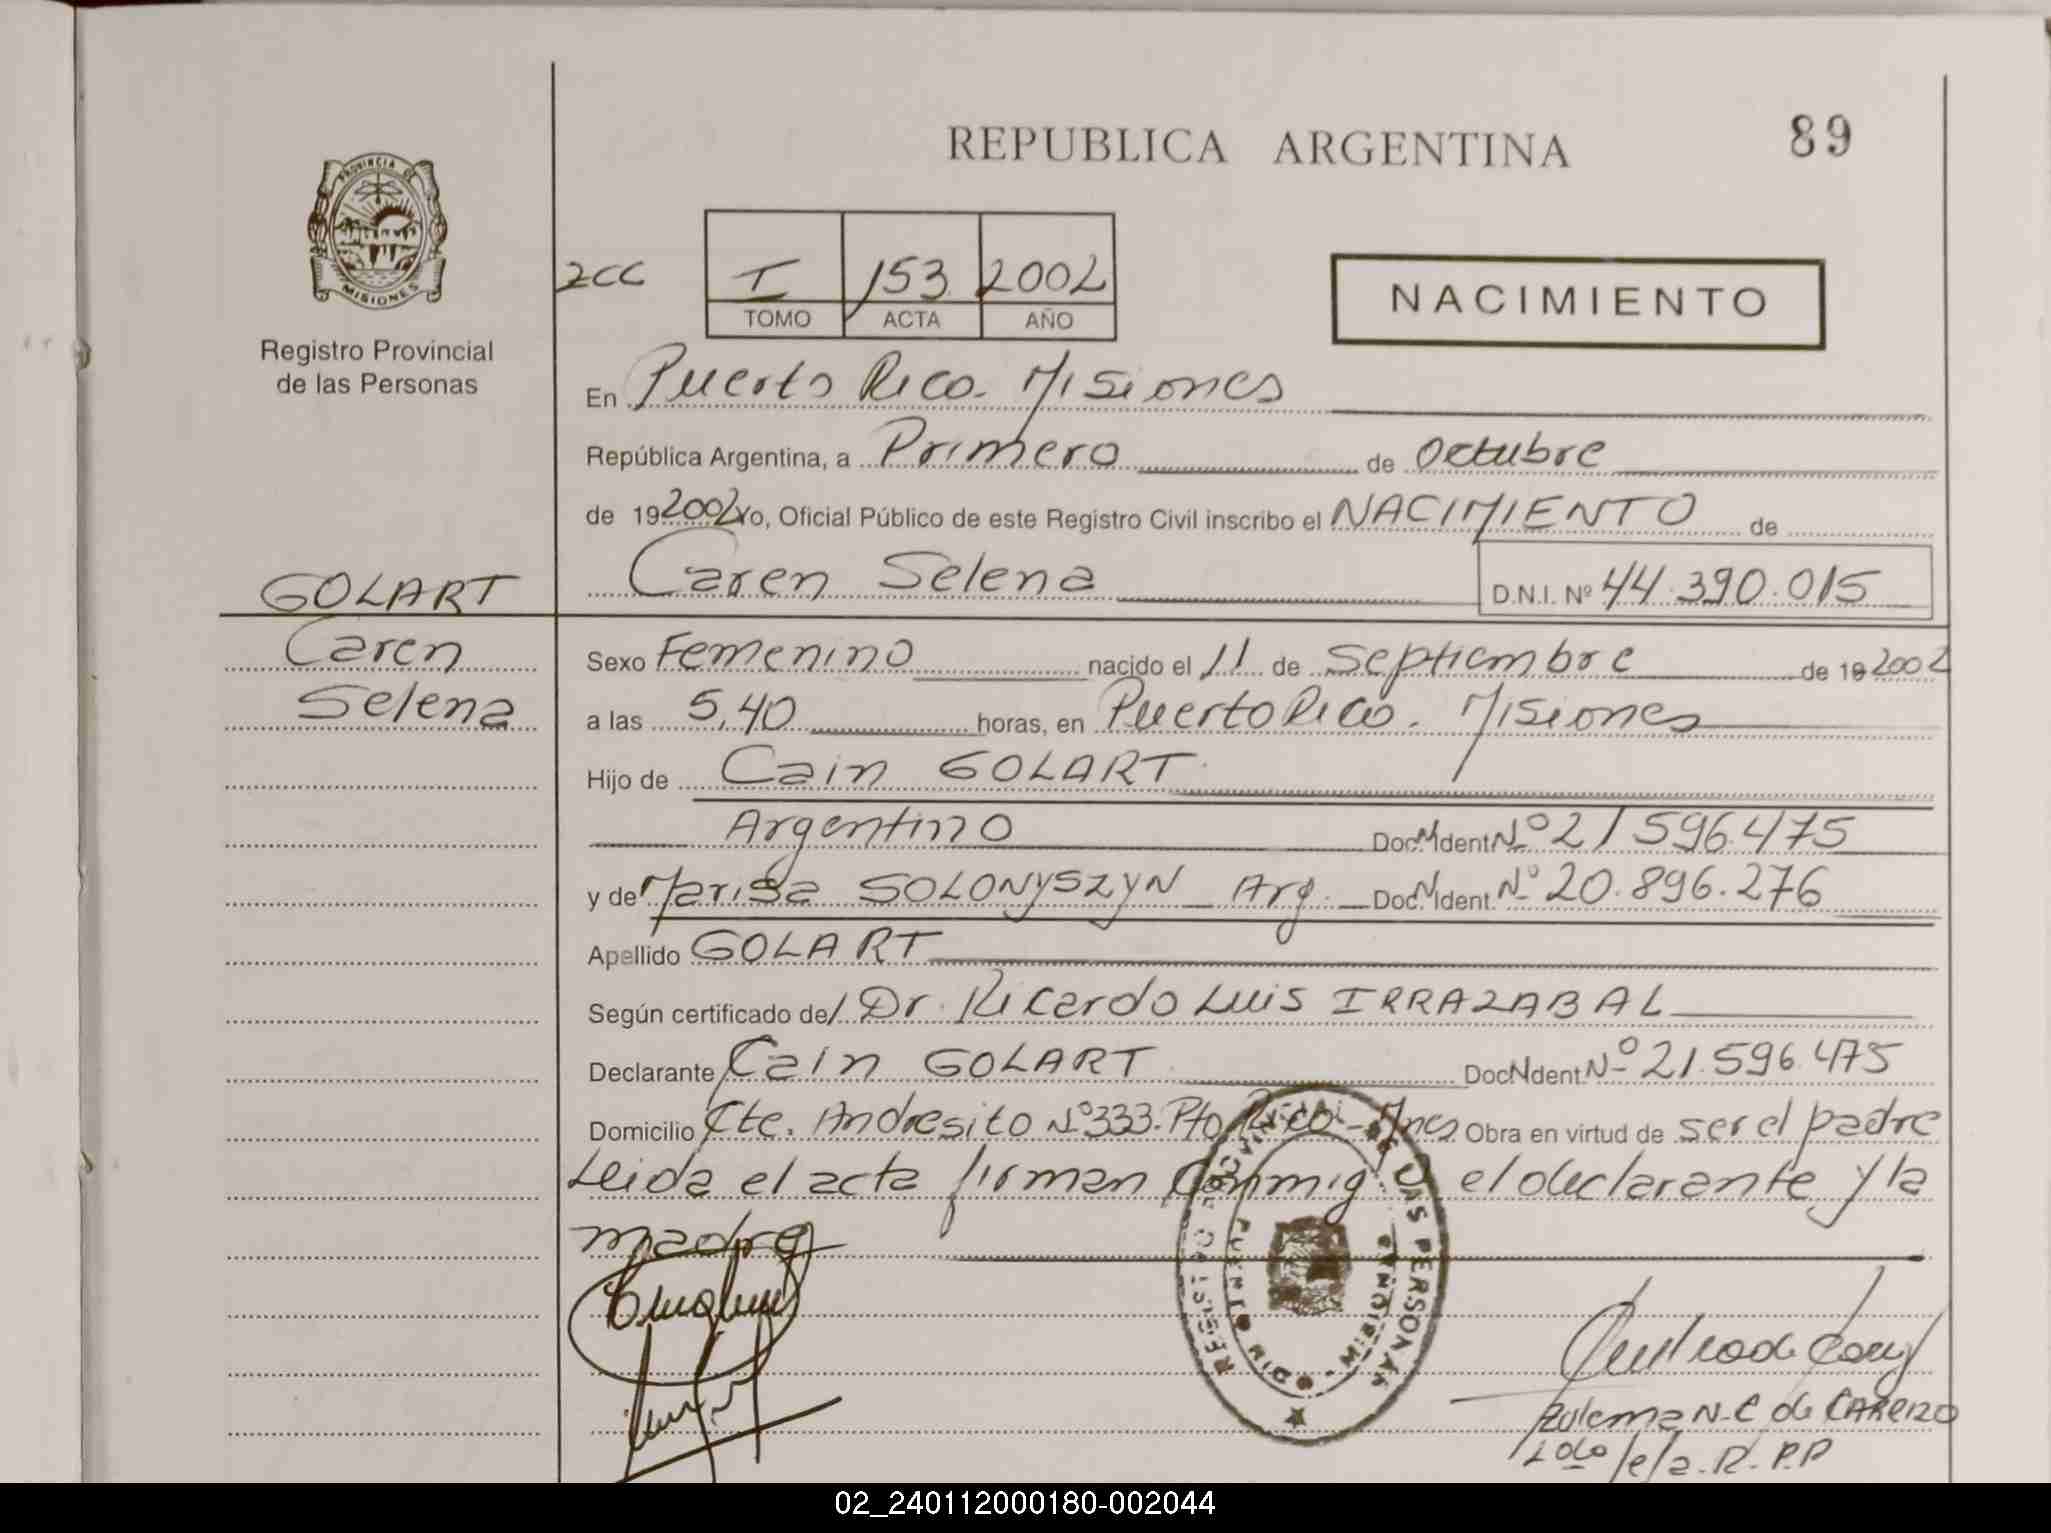 REPUBLICA ARGENTINA
89
PROVINCIA DE
MISIONES
Registro Provincial
de las Personas
ZCC
I 153 2002
TOMO ACTA AÑO
NACIMIENTO
En Puerto Rico. Misiones
República Argentina, a Primero de Octubre
de 19 2002 Yo, Oficial Público de este Registro Civil inscribo el NACIMIENTO de
Caren Selena D.N.I. Nº 44.390.015
GOLART
Caren
Selena
Sexo Femenino nacido el 11 de Septiembre de 19 2002
a las 5,40 horas, en Puerto Rico. Misiones
Hijo de Cain GOLART.
Argentino Doc. Ident Nº 21 596.475
y de Marisa SOLONYSZYN Arg. Doc. Ident. Nº 20.896.276
Apellido GOLART
Según certificado de/ Dr. Ricardo Luis IRRAZABAL
Declarante Cain GOLART Doc Ident. Nº 21.596.475
Domicilio Cte. Andresito Nº 333. Pto Rico - Mnes Obra en virtud de ser el padre
Leida el acta firman conmigo el declarante y la
madre
REGISTRO PROVINCIAL DE LAS PERSONAS
Zulema N. C de CARRIZO
02_240112000180-002044